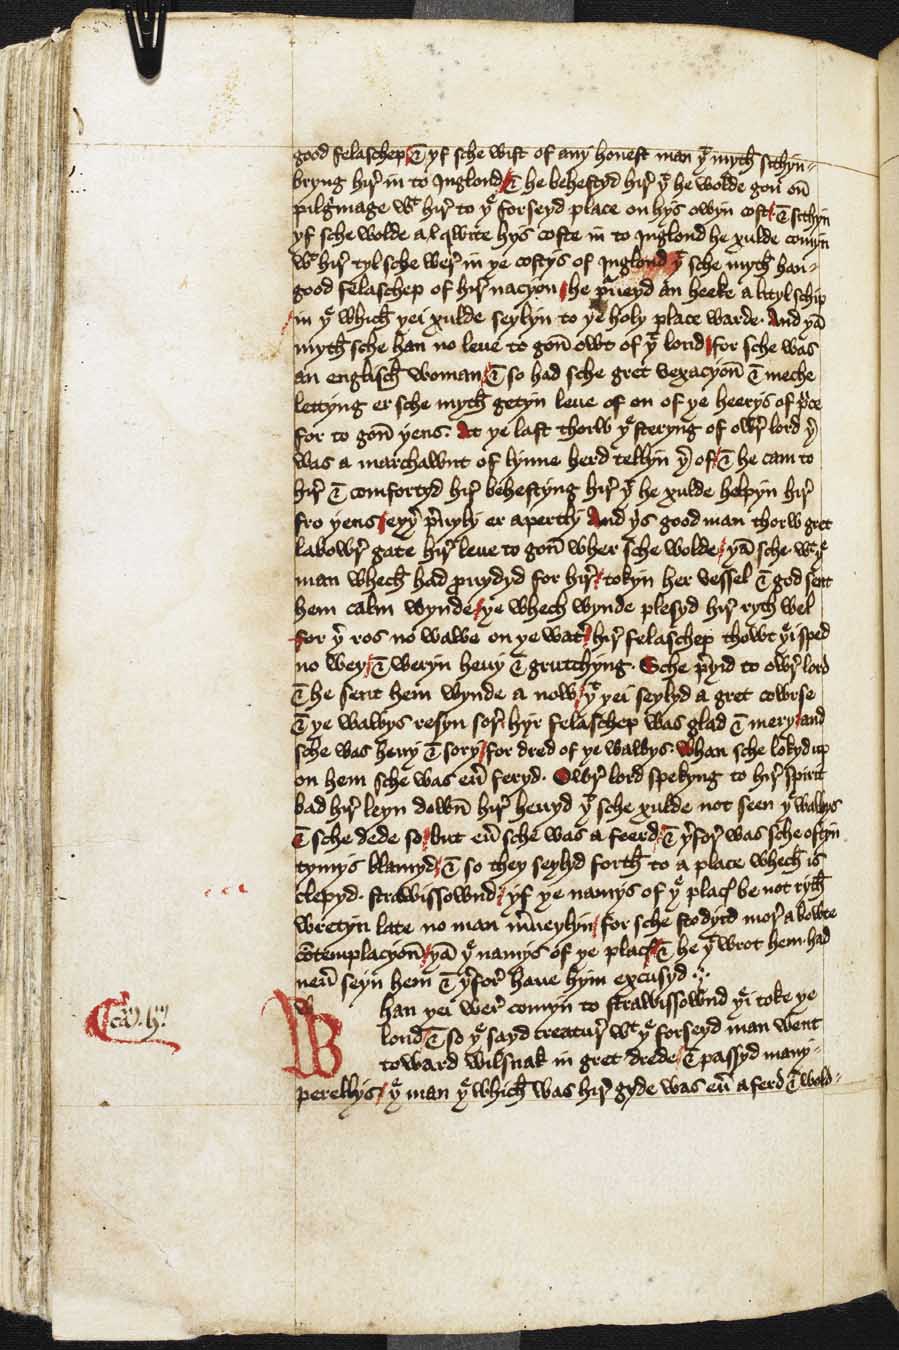 good felaschep & yf sche wist of any honest man yt myth sithyn-
bryng hir in to Inglond / & he behestyd hir yt he wolde gon on
pilgrimage wt hir to yt forseyd place on hys owyn cost / & sithyn
yf sche wolde a qwite hys coste in to Inglond he xulde comyn
wt hir tyl sche wer in ye costys of Inglond yt sche myth han-
good felaschep of hir nacyon / he purueyd an heeke a lityl schip
in yt which yei xulde seylyn to ye holy place warde. And yan
myth sche han no leue to gon owt of yt lond / for sche was
an englisch woman / & so had sche gret vexacyon & meche
lettyng er sche myth getyn leue of on of ye heerys of pruce
for to gon yens. At ye last thorw yt steryng of owr lord yer
was a marchawnt of lynne herd tellyn yer of / & he cam to
hir & comfortyd hir behestyng hir yt he xulde helpyn hir
fro yens / eyyer preuyly er apertly And yis good man thorw gret
labowr gate hir leue to gon wher sche wolde / yan sche wt ye
man whech had prouydyd for hir / tokyn her vessel & god sent
hem calm wynde / ye whech wynde plesyd hir rych wel
for yer ros no wawe on ye watyr / hir felaschep thowt yei sped
no wey / & weryn heuy & grutchyng. Sche preyid to owr lord
& he sent hem wynde a now / yt yei seylyd a gret cowrse
& ye wawys resyn sor / hyr felaschep was glad & mery / and
sche was heuy & sory / for dred of ye wawys. Whan sche lokyd up
on hem sche was euyr feryd. Owr lord spekyng to hir spirit
bad hir leyn down hir heuyd yt sche xulde not seen ye wawys
& sche dede so / but euyr sche was a feerd / & yerfor was sche oftyn
tymys blamyd / & so they seylyd forth to a place whech is
clepyd. strawissownd / yf ye namys of ye placys be not ryth
wretyn late no man merueylyn / for sche stodyid mor a bowte
contemplacyon / yan ye namys of ye placys / & he yt wrot hem had
neuyr seyn hem & yerfor haue hym excusyd ...
Whan yei wer comyn to strawissownd yei toke ye
cam. 4m
lond / & so yt sayd creatur wt yt forseyd man went
toward wilsnak in gret drede / & passyd many-
perellys / yt man yt which was hir gyde was euyr aferd & wold-